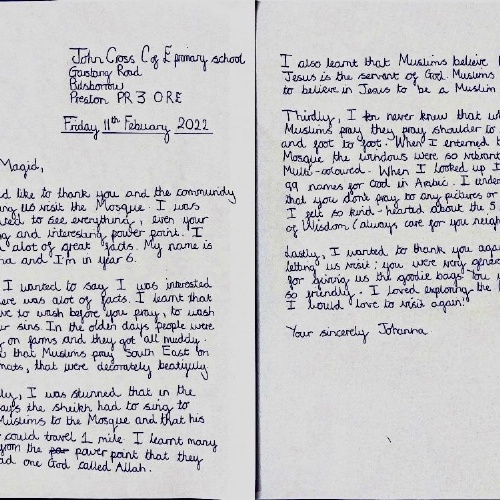 John Cross C of E primary school
Garstang Road
Bilsborrow
Preston PR3 0RE
Friday 11th Febuary 2022
Magid,
d like to thank you and the community
ing us visit the Mosque. I was
ed to see everything, even your
ng and interesing power point. I
alot of great facts. My name is
na and I'm in year 6.
I wanted to say I was interested
ere was alot of facts. I learnt that
ve to wash before you pray, to wash
ur sins. In the olden days people were
on farms and they got all muddy.
that Muslims pray South East on
mats, that were decorately beatifuly.
ly, I was stunned that in the
ays the sheikh had to sing to
Muslims to the Mosque and that his
could travel 1 mile. I learnt many
from the power point that they
ad one God called Allah.
I also learnt that Muslims believe
Jesus is the servant of God. Muslims
to believe in Jesus to be a Muslim
Thirdly, I never knew that
Muslims pray they pray shoulder to
and foot to foot. When I enterned
Mosque the windows were so vibrant
Multi-coloured. When I looked up I
99 names for God in Arabic. I
that you dont pray to any pictures or
I felt so kind-hearted about the 5
of Wisdom (always care for you neigh
Lastly, I wanted to thank you aga
letting us visit; you were very gener
for giving us the goodie bags. You
so friendly. I loved exploring the
I would love to visit again!
Your sincerely Johanna